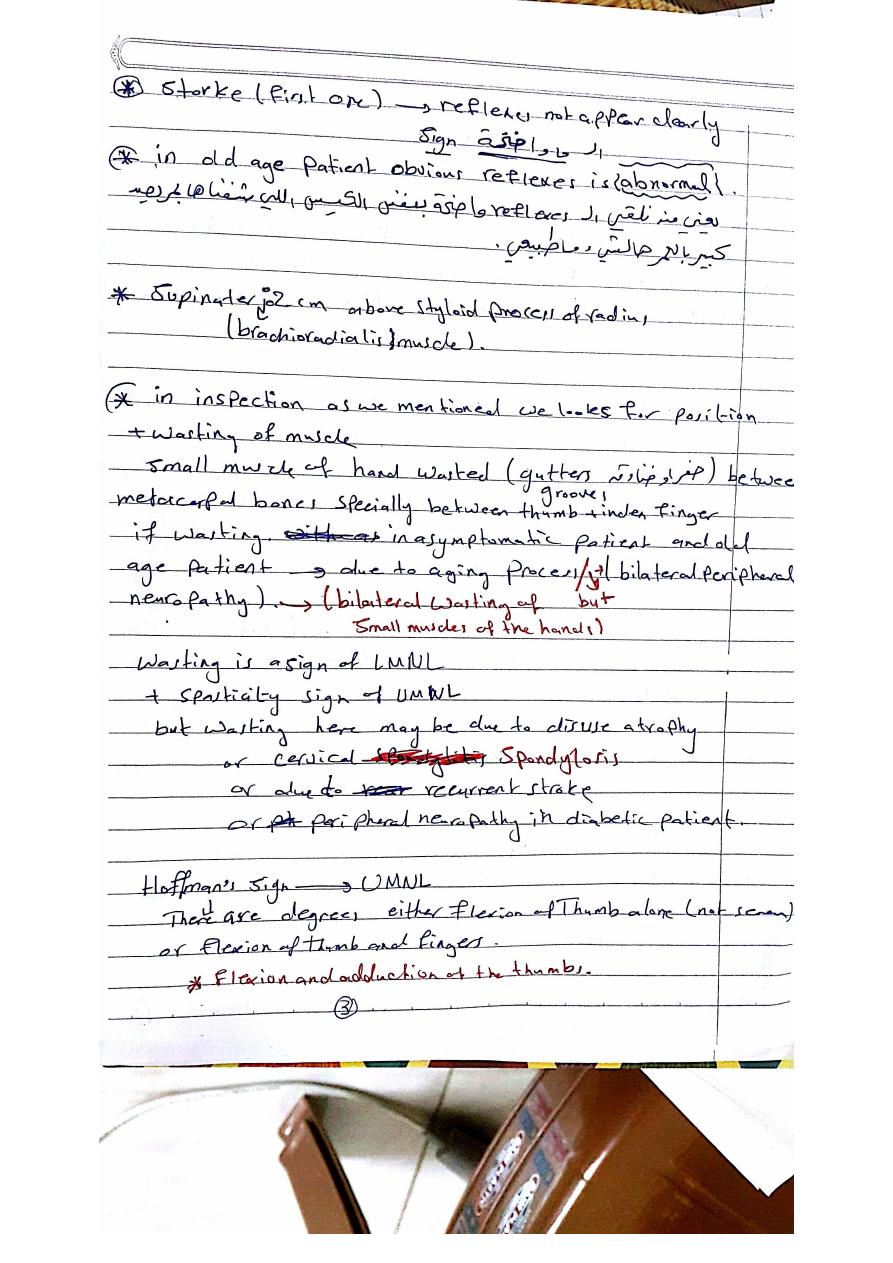 * Storke (first one) → reflexes not appear clearly
الـ sign مو واضحة
* in old age patient obvious reflexes is {abnormal}.
يعني من نلقي الـ reflexes واضحة بنفس الكيس اللي شفناها لمريض
كبير بالعمر هالشي مو طبيعي.
* Supinater jo 2 cm above styloid process of radius
(brachioradialis} muscle).
* in inspection as we mentioned we looks for position
+ wasting of muscle
Small muscle of hand wasted (gutters حفر) betwee
grooves
metacarpal bones specially between thumb + index finger
if wasting in asymptomatic patient and old
age patient → due to aging process / (bilateral peripheral
neuropathy). → (bilateral wasting of but
small muscles of the hands)
Wasting is a sign of LMNL
+ spasticity sign of UMNL
but wasting here may be due to disuse atrophy
or cervical Spondylosis
or due to recurrent stroke
or peripheral neuropathy in diabetic patient.
Hoffman's sign → UMNL
There are degrees either flexion of Thumb alone (not seen)
or flexion of thumb and finges.
* Flexion and adduction of the thumbs.
3